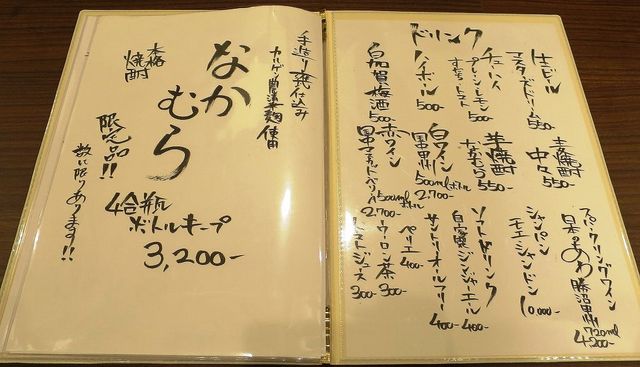 手造り甕仕込み
カルゲン農法米麹使用
なかむら
本格
焼酎
限定品!!
数に限りあります!!
4合瓶
ボトルキープ
3,200-
ドリンク
生ビール
マスターズドリーム 550-
チューハイ
プレーン・レモン
すだち・トマト 500-
ハイボール
500-
白加賀梅酒
500-
麦焼酎
中々 550-
芋焼酎
なかむら 550-
白ワイン
国中甲州
500mlボトル
2,700-
赤ワイン
500mlボトル
2,700-
スパークリングワイン
日本のあわ 勝沼甲州
720ml
4,200-
シャンパン
モエ・シャンドン
10,000-
ソフトドリンク
自家製ジンジャーエール
400-
サントリーオールフリー
400-
ペリエ
400-
ウーロン茶
300-
トマトジュース
300-